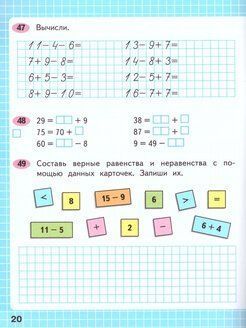 47 Вычисли.
11-4-6= 13-9+7=
7+9-8= 14-8+3=
6+5-3= 12-5+7=
8+9-10= 16-7+7=
48 29 = + 9 38 = +
75 = 70 + 87 = -
60 = - 8 9 = 49 -
49 Составь верные равенства и неравенства с по-
мощью данных карточек. Запиши их.
< 8 15 - 9 6 > =
11 - 5 + 2 - 6 + 4
20